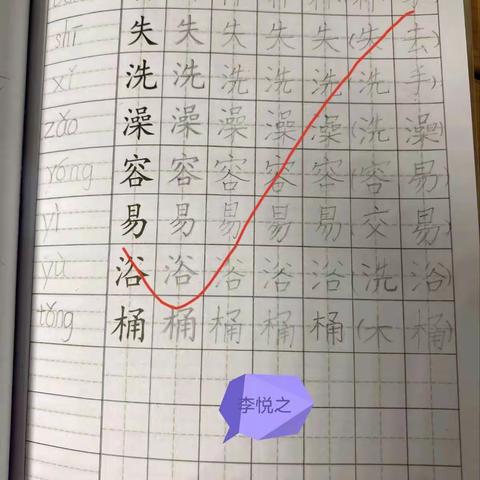 shī 失 失 失 失 失 (失 去)
xǐ 洗 洗 洗 洗 洗 (洗 手)
zǎo 澡 澡 澡 澡 澡 (洗 澡)
róng 容 容 容 容 容 (容 易)
yì 易 易 易 易 易 (交 易)
yù 浴 浴 浴 浴 浴 (洗 浴)
tǒng 桶 桶 桶 桶 桶 (木 桶)
李悦之